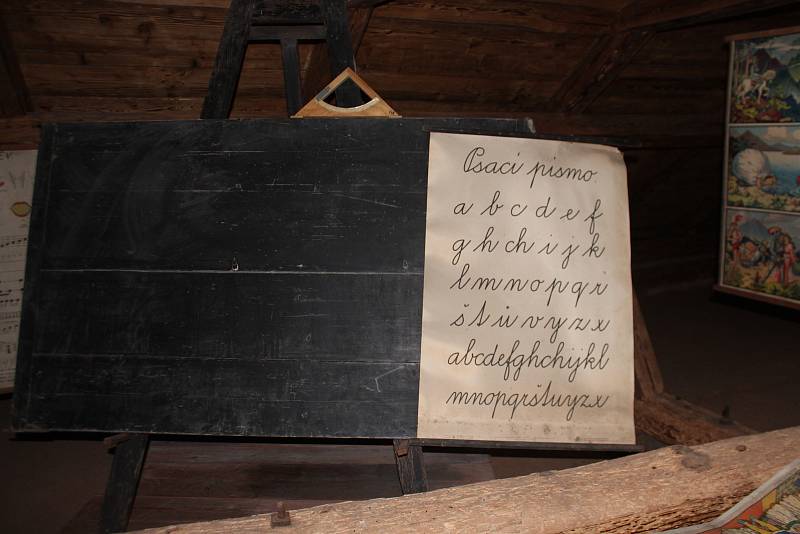 Psací písmo.
a b c d e f
g h ch i j k
l m n o p q r
š t ů v y z x
abcdefghchijkl
mnopqrštuyzx